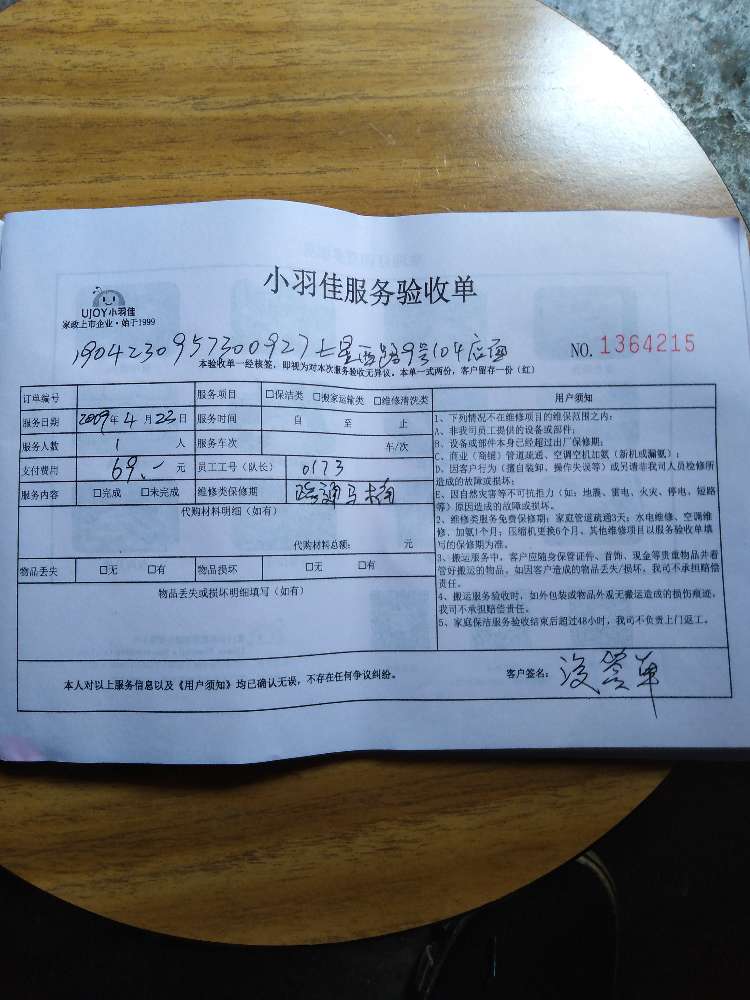 小羽佳服务验收单
UJOY小羽佳
家政上市企业·始于1999
1904230957300927七星西路9号104店面
NO. 1364215
本验收单一经核签，即视为对本次服务验收无异议。本单一式两份，客户留存一份（红）
订单编号 服务项目 □保洁类 □搬家运输类 □维修清洗类
服务日期 2009年 4月 23日 服务时间 自 至 止
服务人数 1 人 服务车次 车/次
支付费用 69.— 元 员工工号（队长） 0173
服务内容 □完成 □未完成 维修类保修期 疏通马桶
代购材料明细（如有）
代购材料总额： 元
物品丢失 □无 □有 物品损坏 □无 □有
物品丢失或损坏明细填写（如有）
用户须知
1、下列情况不在维修项目的维保范围之内：
A、非我司员工提供的设备或部件；
B、设备或部件本身已经超过出厂保修期；
C、商业（商铺）管道疏通、空调空机加氨（新机或漏氨）；
D、因客户行为（擅自装卸、操作失误等）或另请非我司人员检修所
造成的故障或损坏；
E、因自然灾害等不可抗拒力（如：地震、雷电、火灾、停电、短路
等）原因造成的故障或损坏。
2、维修类服务免费保修期：家庭管道疏通3天；水电维修、空调维
修、加氨1个月；压缩机更换6个月、其他维修项目以服务验收单填
写的保修期为准。
3、搬运服务中，客户应随身保管证件、首饰、现金等贵重物品并看
管好搬运的物品，如因客户造成的物品丢失/损坏，我司不承担赔偿
责任。
4、搬运服务验收时，如外包装或物品外观无搬运造成的损伤痕迹，
我司不承担赔偿责任。
5、家庭保洁服务验收结束后超过48小时，我司不负责上门返工。
本人对以上服务信息以及《用户须知》均已确认无误，不存在任何争议纠纷。
客户签名： 没签单